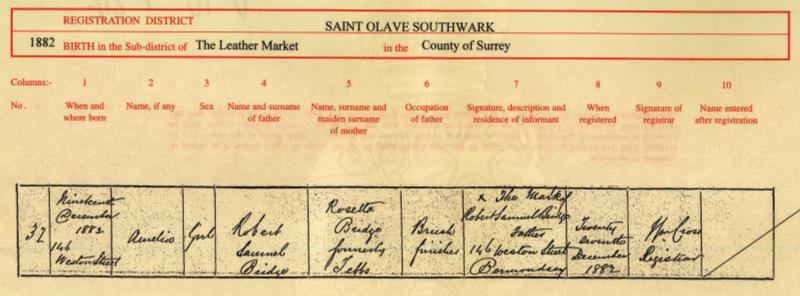 REGISTRATION DISTRICT SAINT OLAVE SOUTHWARK
1882 BIRTH in the Sub-district of The Leather Market in the County of Surrey
Columns:- 1 2 3 4 5 6 7 8 9 10
No. When and where born Name, if any Sex Name and surname of father Name, surname and maiden surname of mother Occupation of father Signature, description and residence of informant When registered Signature of registrar Name entered after registration
32
Nineteenth
December
1882
146
Weston Street
Amelia
Girl
Robert
Samuel
Bridge
Rosetta
Bridge
formerly
Tebbs
Brush
finisher
x The Mark of
Robert Samuel Bridge
Father
146 Weston Street
Bermondsey
Twenty
seventh
December
1882
Wm Cross
Registrar